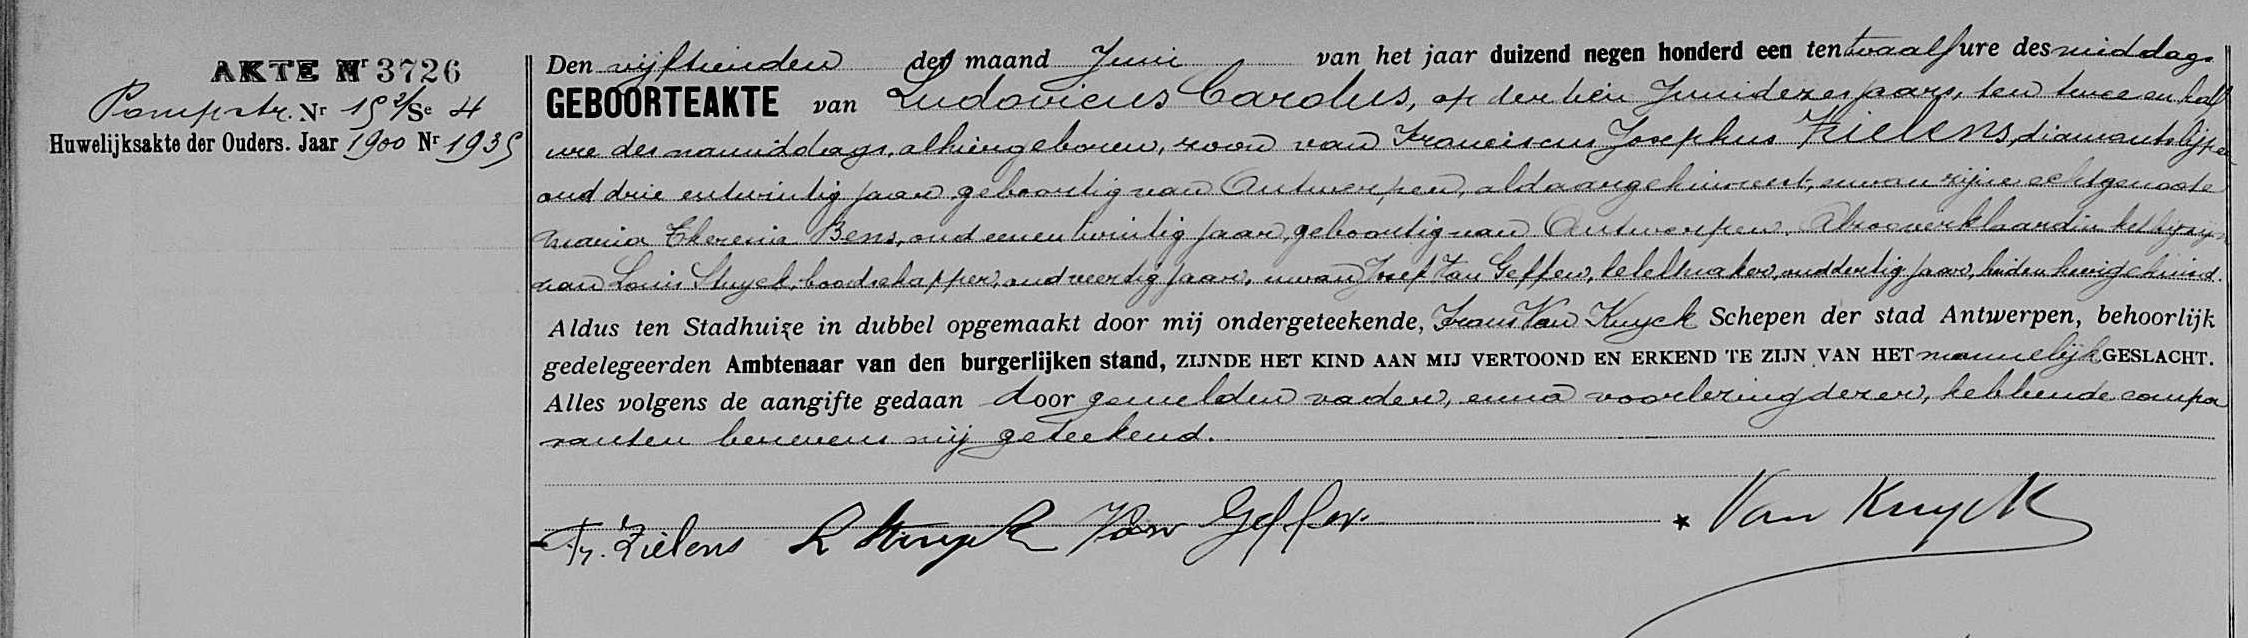 AKTE Nr 3726
Pompstr. Nr 15 2/Se 4
Huwelijksakte der Ouders. Jaar 1900 Nr 1935
Den vijftienden der maand Juni van het jaar duizend negen honderd een ten twaalf ure des middags
GEBOORTEAKTE van Ludovicus Carolus, op den tien Juni dezes jaars, ten twee en half
ure des namiddags, alhier geboren, zoon van Franciscus Josephus Zielens, diamantslijper
oud drie entwintig jaar, geboortig van Antwerpen, aldaar gehuisvest, en van zijne echtgenoote
Maria Theresia Bens, oud eenentwintig jaar, geboortig van Antwerpen. Alzoo verklaard in het bijzijn
van Louis Stuyck, boodschapper, oud veertig jaar, en van Josef Van Geffen, ketelmaker, oud dertig jaar, beiden hier gehuisd.
Aldus ten Stadhuize in dubbel opgemaakt door mij ondergeteekende, Frans Van Kuyck Schepen der stad Antwerpen, behoorlijk
gedelegeerden Ambtenaar van den burgerlijken stand, ZIJNDE HET KIND AAN MIJ VERTOOND EN ERKEND TE ZIJN VAN HET mannelijk GESLACHT.
Alles volgens de aangifte gedaan door gemelden vader, en na voorlezing dezer, hebben de compa
ranten benevens mij geteekend.
Fr. Zielens L Stuyck Van Geffen. Van Kuyck